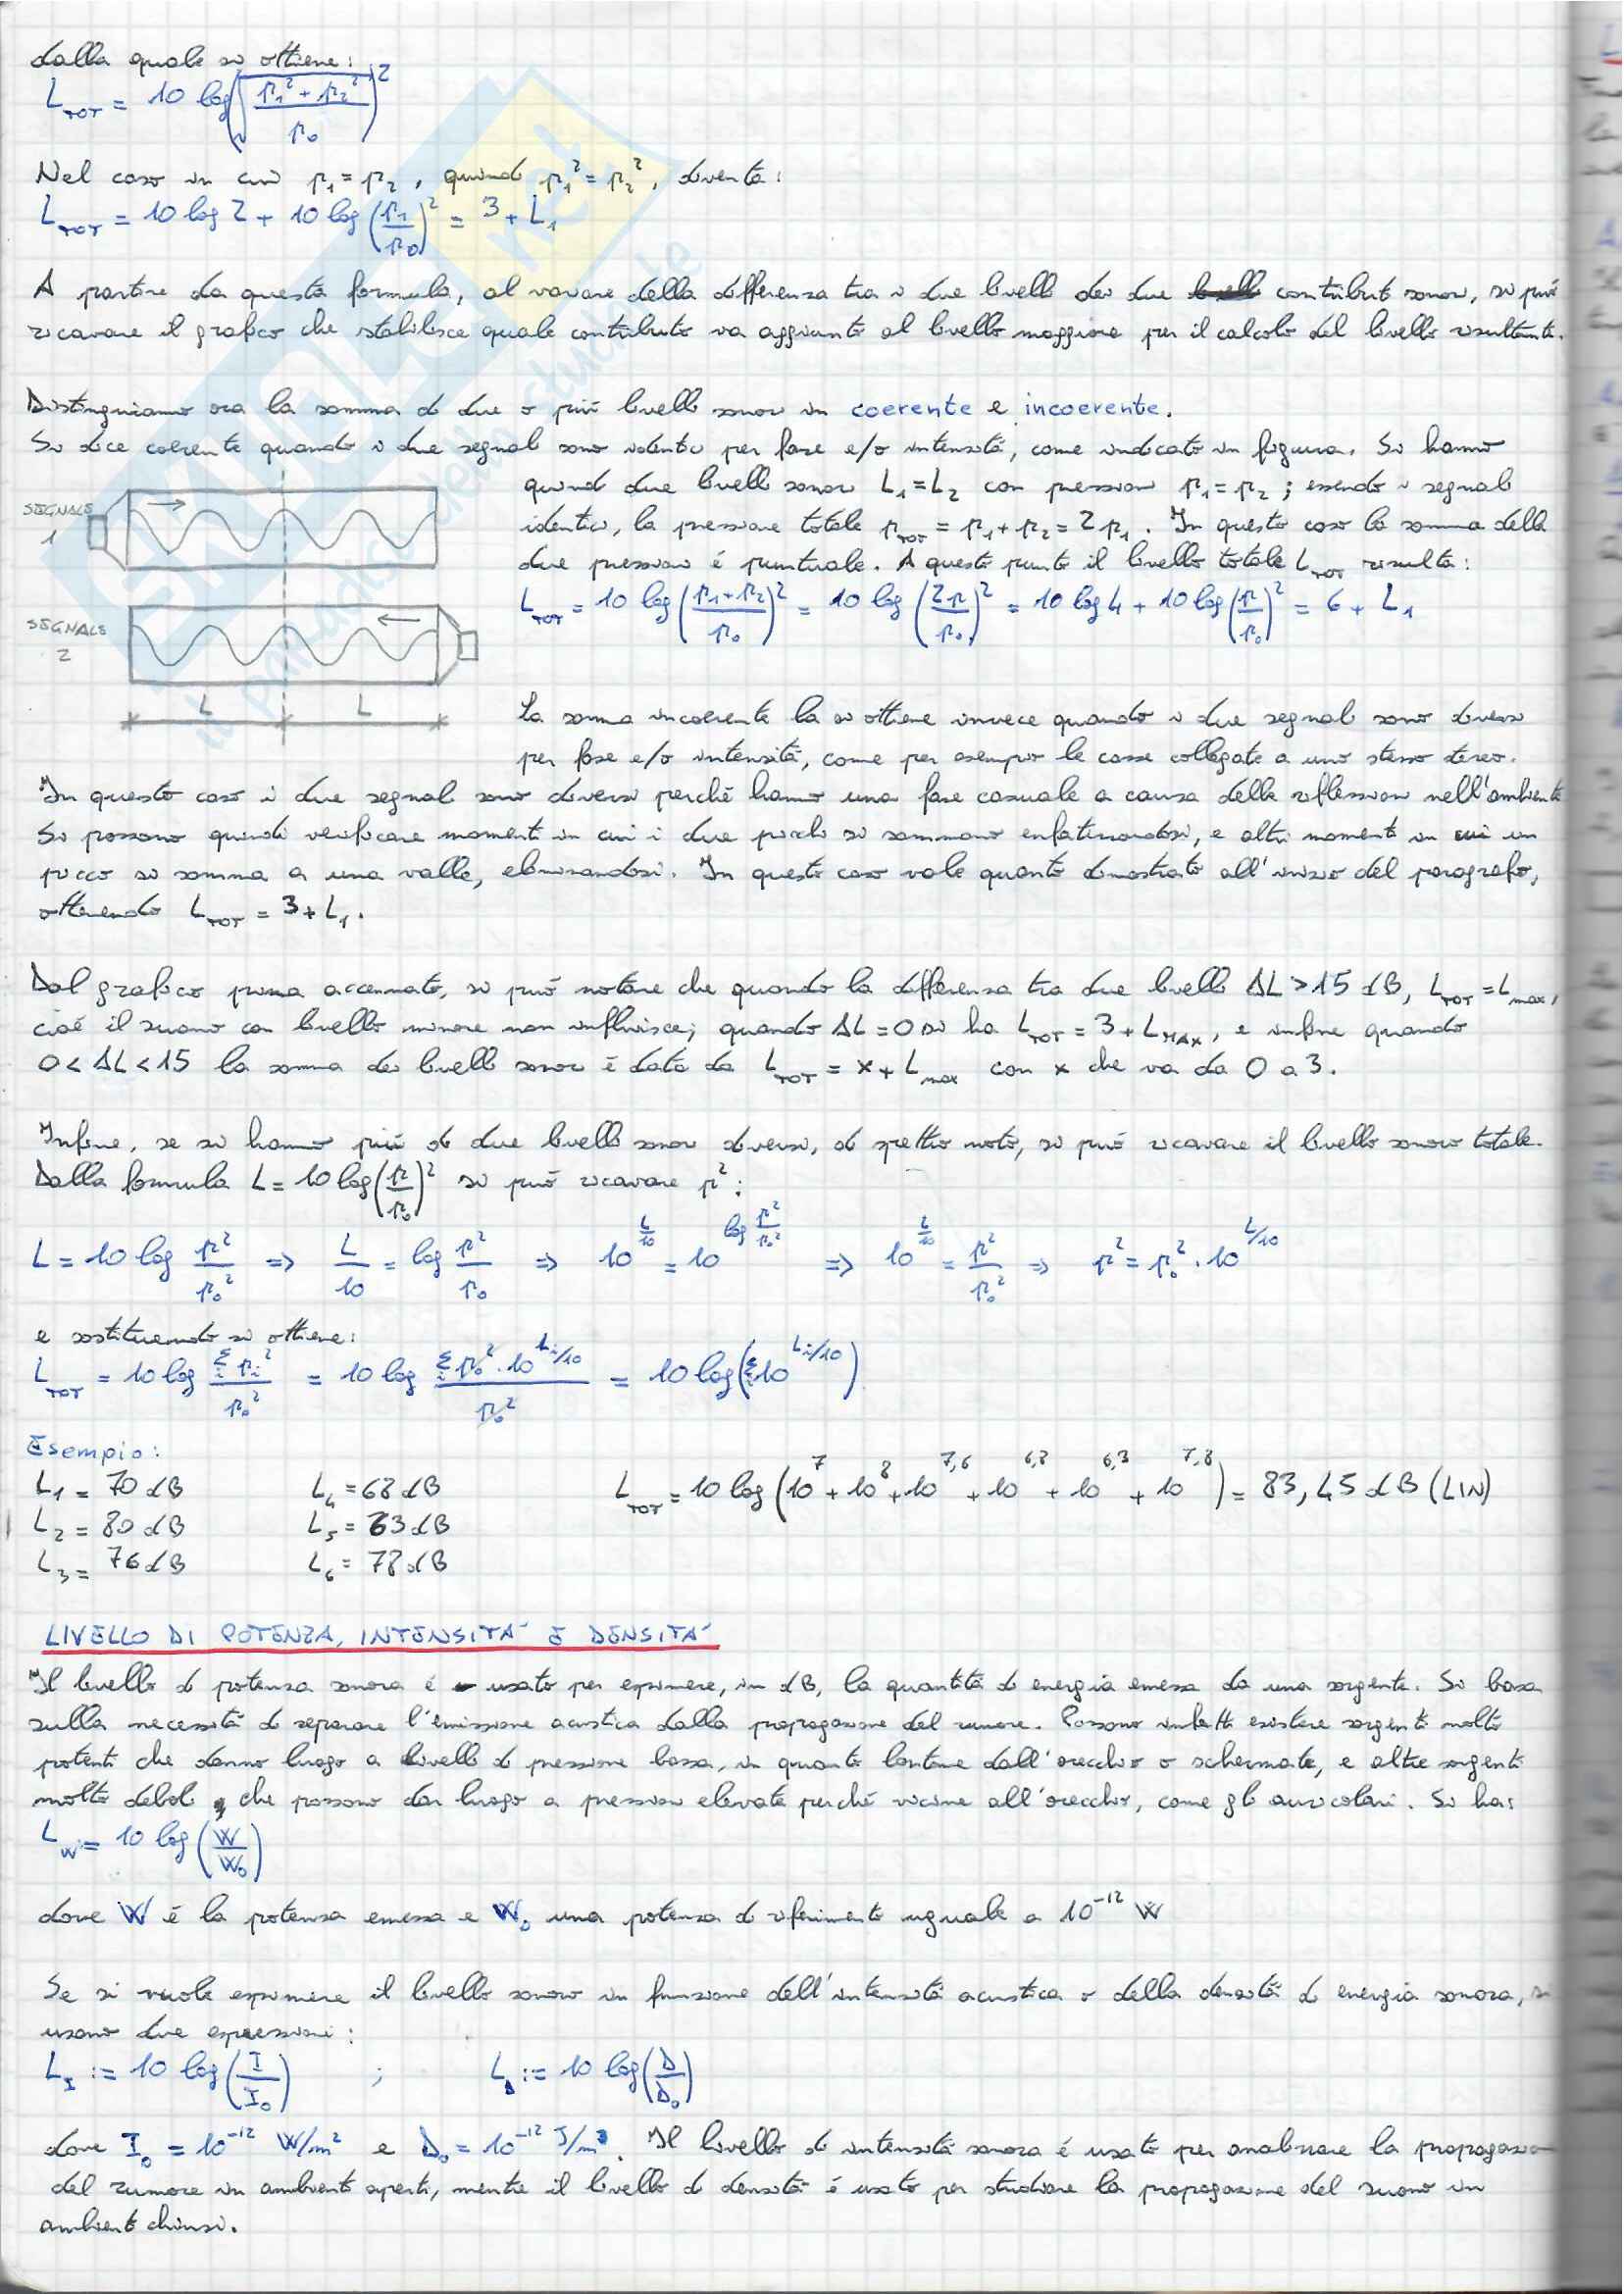 dalla quale si ottiene:
L_TOT = 10 log (√(p₁² + p₂²) / p₀)²
Nel caso in cui p₁ = p₂, quindi p₁² = p₂², diventa:
L_TOT = 10 log 2 + 10 log (p₁/p₀)² = 3 + L₁
A partire da questa formula, al variare della differenza tra i due livelli dei due contributi sonori, si può
ricavare il grafico che stabilisce quale contributo va aggiunto al livello maggiore per il calcolo del livello risultante.
Distinguiamo ora la somma di due o più livelli sonori in coerente e incoerente.
Si dice coerente quando i due segnali sono identici per fase e/o intensità, come indicato in figura. Si hanno
quindi due livelli sonori L₁ = L₂ con pressioni p₁ = p₂; essendo i segnali
identici, la pressione totale p_TOT = p₁ + p₂ = 2p₁. In questo caso la somma delle
due pressioni é puntuale. A questo punto il livello totale L_TOT risulta:
L_TOT = 10 log ((p₁+p₂)/p₀)² = 10 log (2p/p₀)² = 10 log 4 + 10 log (p/p₀)² = 6 + L₁
SEGNALE 1
SEGNALE 2
L L
La somma incoerente la si ottiene invece quando i due segnali sono diversi
per fase e/o intensità, come per esempio le casse collegate a uno stesso stereo.
In questo caso i due segnali sono diversi perché hanno una fase casuale a causa delle riflessioni nell'ambiente
Si possono quindi verificare momenti in cui i due picchi si sommano enfatizzandosi, e altri momenti in cui un
picco si somma a una valle, eliminandosi. In questo caso vale quanto dimostrato all'inizio del paragrafo,
ottenendo L_TOT = 3 + L₁.
Dal grafico prima accennato, si può notare che quando la differenza tra due livelli ΔL > 15 dB, L_TOT = L_max,
cioé il suono con livello minore non influisce; quando ΔL = 0 si ha L_TOT = 3 + L_MAX, e infine quando
0 < ΔL < 15 la somma dei livelli sonori è data da L_TOT = x + L_max con x che va da 0 a 3.
Infine, se si hanno più di due livelli sonori diversi, di spettro noto, si può ricavare il livello sonoro totale.
Dalla formula L = 10 log (p/p₀)² si può ricavare p²:
L = 10 log p²/p₀² ⇒ L/10 = log p²/p₀ ⇒ 10^(L/10) = 10^(log p²/p₀²) ⇒ 10^(L/10) = p²/p₀² ⇒ p² = p₀² · 10^(L/10)
e sostituendo si ottiene:
L_TOT = 10 log (Σᵢ pᵢ²)/p₀² = 10 log (Σᵢ p₀² · 10^(Lᵢ/10))/p₀² = 10 log (Σᵢ 10^(Lᵢ/10))
Esempio:
L₁ = 70 dB L₄ = 68 dB L_TOT = 10 log (10^7 + 10^8 + 10^7,6 + 10^6,8 + 10^6,3 + 10^7,8) = 83,45 dB (LIN)
L₂ = 80 dB L₅ = 63 dB
L₃ = 76 dB L₆ = 78 dB
LIVELLO DI POTENZA, INTENSITA' E DENSITA'
Il livello di potenza sonora é usato per esprimere, in dB, la quantità di energia emessa da una sorgente. Si basa
sulla necessità di separare l'emissione acustica dalla propagazione del rumore. Possono infatti esistere sorgenti molto
potenti che danno luogo a livelli di pressione bassa, in quanto lontane dall'orecchio o schermate, e altre sorgenti
molto deboli, che possono dar luogo a pressioni elevate perché vicine all'orecchio, come gli auricolari. Si ha:
L_W = 10 log (W/W₀)
dove W é la potenza emessa e W₀ una potenza di riferimento uguale a 10⁻¹² W
Se si vuole esprimere il livello sonoro in funzione dell'intensità acustica o della densità di energia sonora, si
usano due espressioni:
L_I := 10 log (I/I₀) ; L_D := 10 log (D/D₀)
dove I₀ = 10⁻¹² W/m² e D₀ = 10⁻¹² J/m³. Il livello di intensità sonora é usato per analizzare la propagazio
del rumore in ambienti aperti, mentre il livello di densità é usato per studiare la propagazione del suono in
ambienti chiusi.